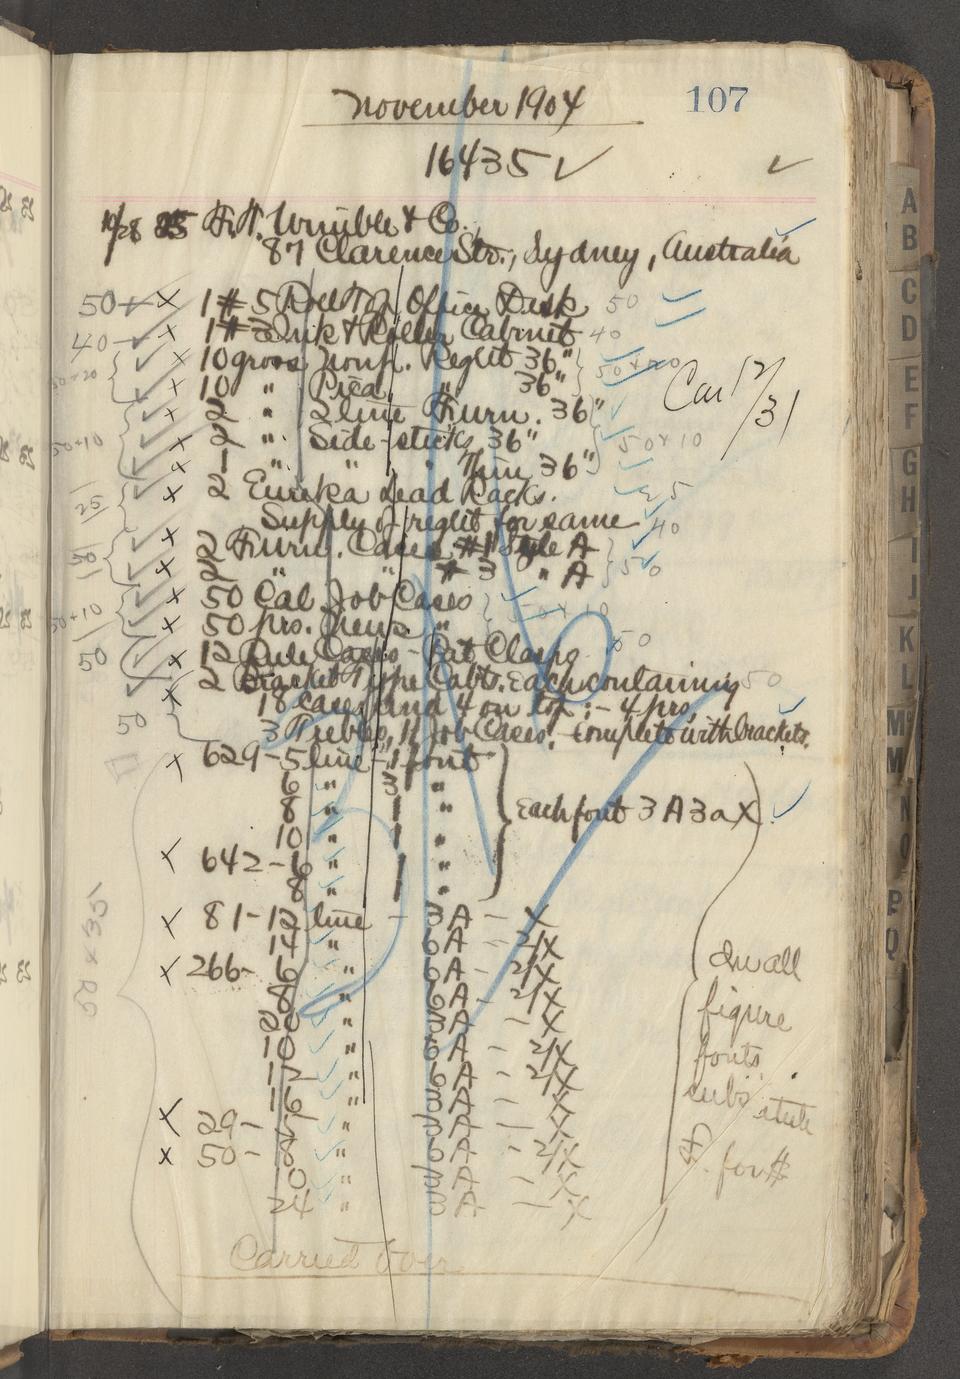 November 1904
107
16435 ✓ ✓
10/28 F.T. Wimble & Co.
87 Clarence Str., Sydney, Australia
50 x 1 # 5 Roll Top Office Desk 50
40 x 1 # 3 Ink & Roller Cabinet 40
x 10 gross Nonp. Reglet 36" 50+20
50+20 x 10 " Pica " 36"
Car 12/31
x 2 " 2 line Furn. 36"
50+10 x 2 " Side-sticks 36" 50+10
x 1 " " " Thin 36"
25 x 2 Eureka Lead Racks. 25
Supply of reglet for same 40
x 2 Furn. Cases #1 Style A
50 x 2 " " # 3 " A 50
50+10 x 50 Cal Job Cases 50+10
x 50 prs. News "
50 x 12 Rule Cases - Pat Clasp 50
x 2 Bracket Type Cabts. each containing 50
50 18 cases and 4 on top :- 4 prs,
3 Trebles, 11 Job Cases. - complete with brackets.
x 629 - 5 line - 1 font
6 " 3 "
8 " 1 "
Each font 3 A 3 a X
10 " 1 "
x 642 - 6 " 1 "
8 " 1 "
50 x 35
x 81 - 12 line - 3 A - X
14 " 6 A - 2/X
x 266 - 6 " 6 A - 2/X
8 " 6 A - 2/X
" 3 A - X
10 " 6 A - 2/X
12 " 6 A - 2/X
16 " 3 A - X
x 29 - " 3 A - X
x 50 - 8 " 6 A - 2/X
10 " 3 A - X
24 " 3 A - X
Small
figure
fonts
substitute
£ for $
Carried Over
A
B
C
D
E
F
G
H
I
J
K
L
M
M
N
O
P
Q